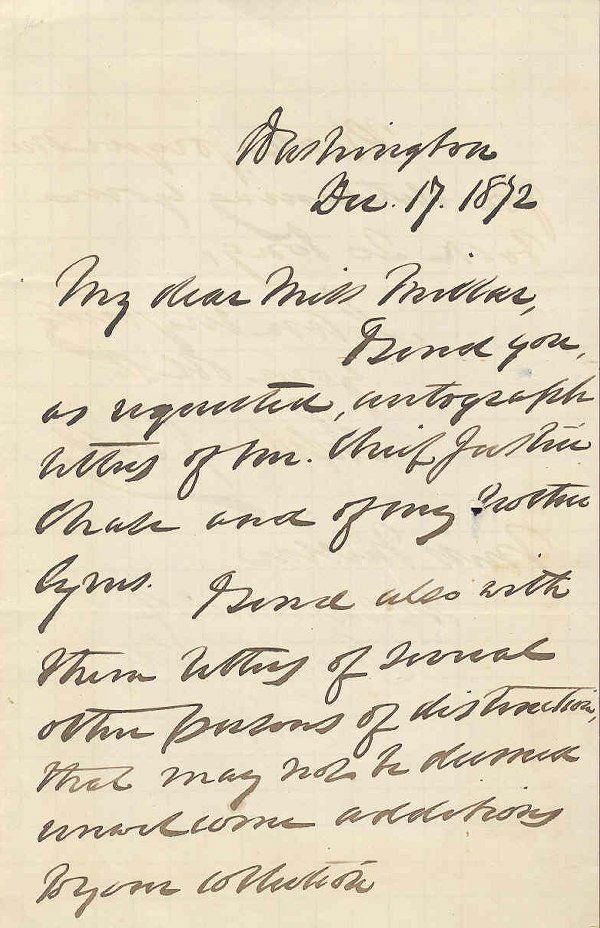 Washington
Dec. 17. 1872
My dear Miss Millar,
I send you,
as requested, autograph
letters of Mr. Chief Justice
Chase and of my brother
Cyrus. I send also with
them letters of several
other persons of distinction,
that may not be deemed
unwelcome additions
to your collection